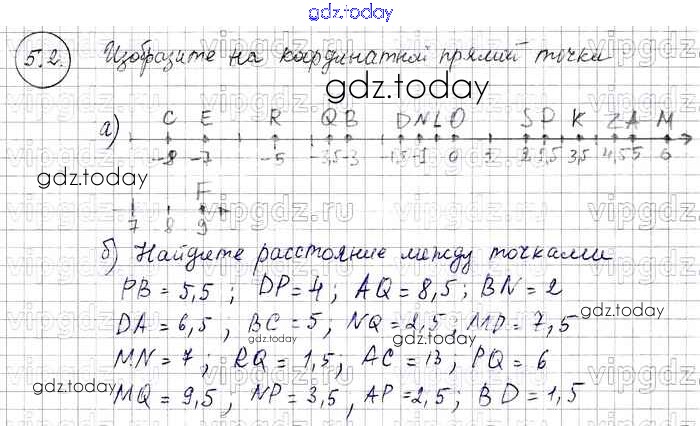 gdz.today
5.2. Изобразите на координатной прямой точки
gdz.today
а) C E R Q B D N L O S P K Z A M
-8 -7 -5 -3,5 -3 -1,5 -1 0 1 2 2,5 3,5 4,5 5 6
gdz.today
F
7 8 9
б) Найдите расстояние между точками
PB = 5,5 ; DP = 4 ; AQ = 8,5 ; BN = 2
gdz.today
DA = 6,5 , BC = 5 ; NQ = 2,5 , MD = 7,5
gdz.today
MN = 7 ; RQ = 1,5 , AC = 13 , PQ = 6
gdz.today
MQ = 9,5 , NP = 3,5 , AP = 2,5 ; BD = 1,5